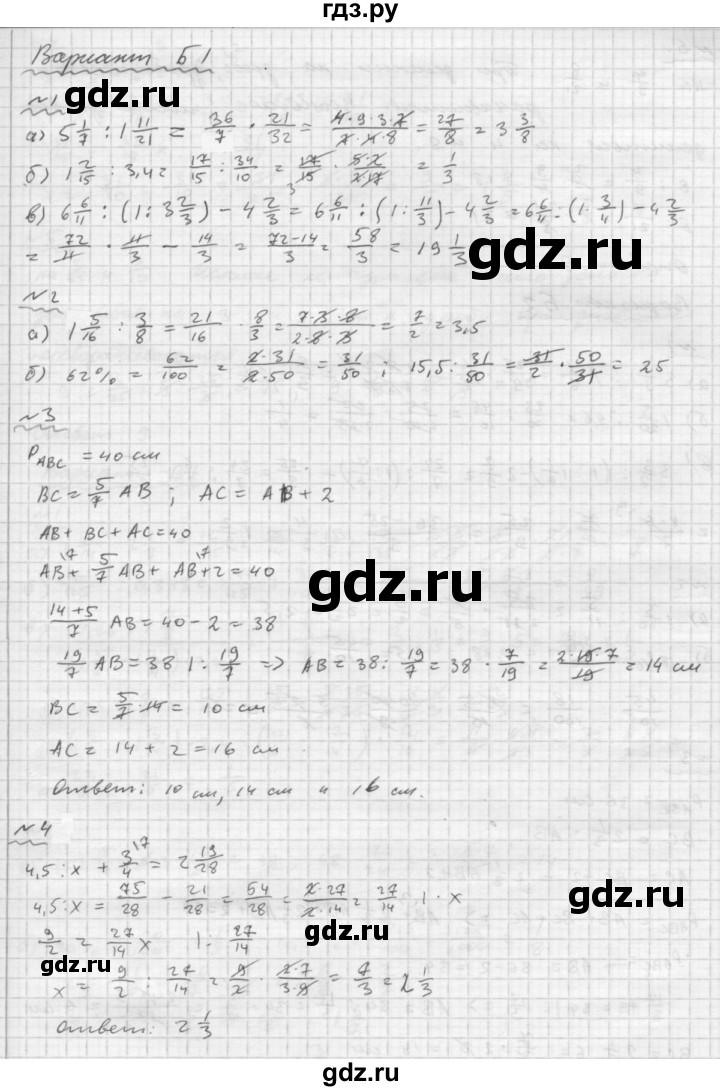 гдз.ру
Вариант Б1
№1
а) 5 1/7 : 1 11/21 = 36/7 · 21/32 = 4·9·3·7/7·4·8 = 27/8 = 3 3/8
gdz.ru
б) 1 2/15 : 3,4 = 17/15 : 34/10 = 17/15 · 5·2/2·17 = 1/3
3
в) 6 6/11 : (1 : 3 2/3) - 4 2/3 = 6 6/11 : (1 : 11/3) - 4 2/3 = 6 6/11 : (1 · 3/11) - 4 2/3
= 72/11 · 11/3 - 14/3 = 72-14/3 = 58/3 = 19 1/3
gdz.ru
№2
а) 1 5/16 : 3/8 = 21/16 · 8/3 = 7·3·8/2·8·3 = 7/2 = 3,5
б) 62% = 62/100 = 2·31/2·50 = 31/50 ; 15,5 : 31/50 = 31/2 · 50/31 = 25
№3
P ABC = 40 см
BC = 5/7 AB ; AC = AB + 2
AB + BC + AC = 40
AB \7 + 5/7 AB + AB \7 + 2 = 40
gdz.ru
14+5/7 AB = 40 - 2 = 38
19/7 AB = 38 | : 19/7 => AB = 38 : 19/7 = 38 · 7/19 = 2·19·7/19 = 14 см
BC = 5/7 · 14 = 10 см
AC = 14 + 2 = 16 см
Ответ: 10 см, 14 см и 16 см.
№4
4,5 : x + 3/4 \7 = 2 19/28
4,5 : x = 75/28 - 21/28 = 54/28 = 2·27/2·14 = 27/14 | · x
gdz.ru
9/2 = 27/14 x | : 27/14
gdz.ru
gdz.ru
x = 9/2 : 27/14 = 9/2 · 2·7/3·9 = 7/3 = 2 1/3
Ответ: 2 1/3
gdz.ru